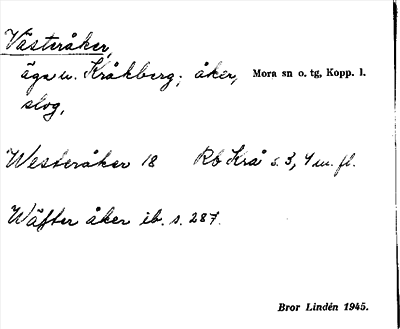 Västeråker,
äga u. Kråkberg; åker, Mora sn o. tg, Kopp. l.
slog,
Westeråker 18 Rb Krå s. 3, 4 m. fl.
Wäster åker ib. s. 287.
Bror Lindén 1945.